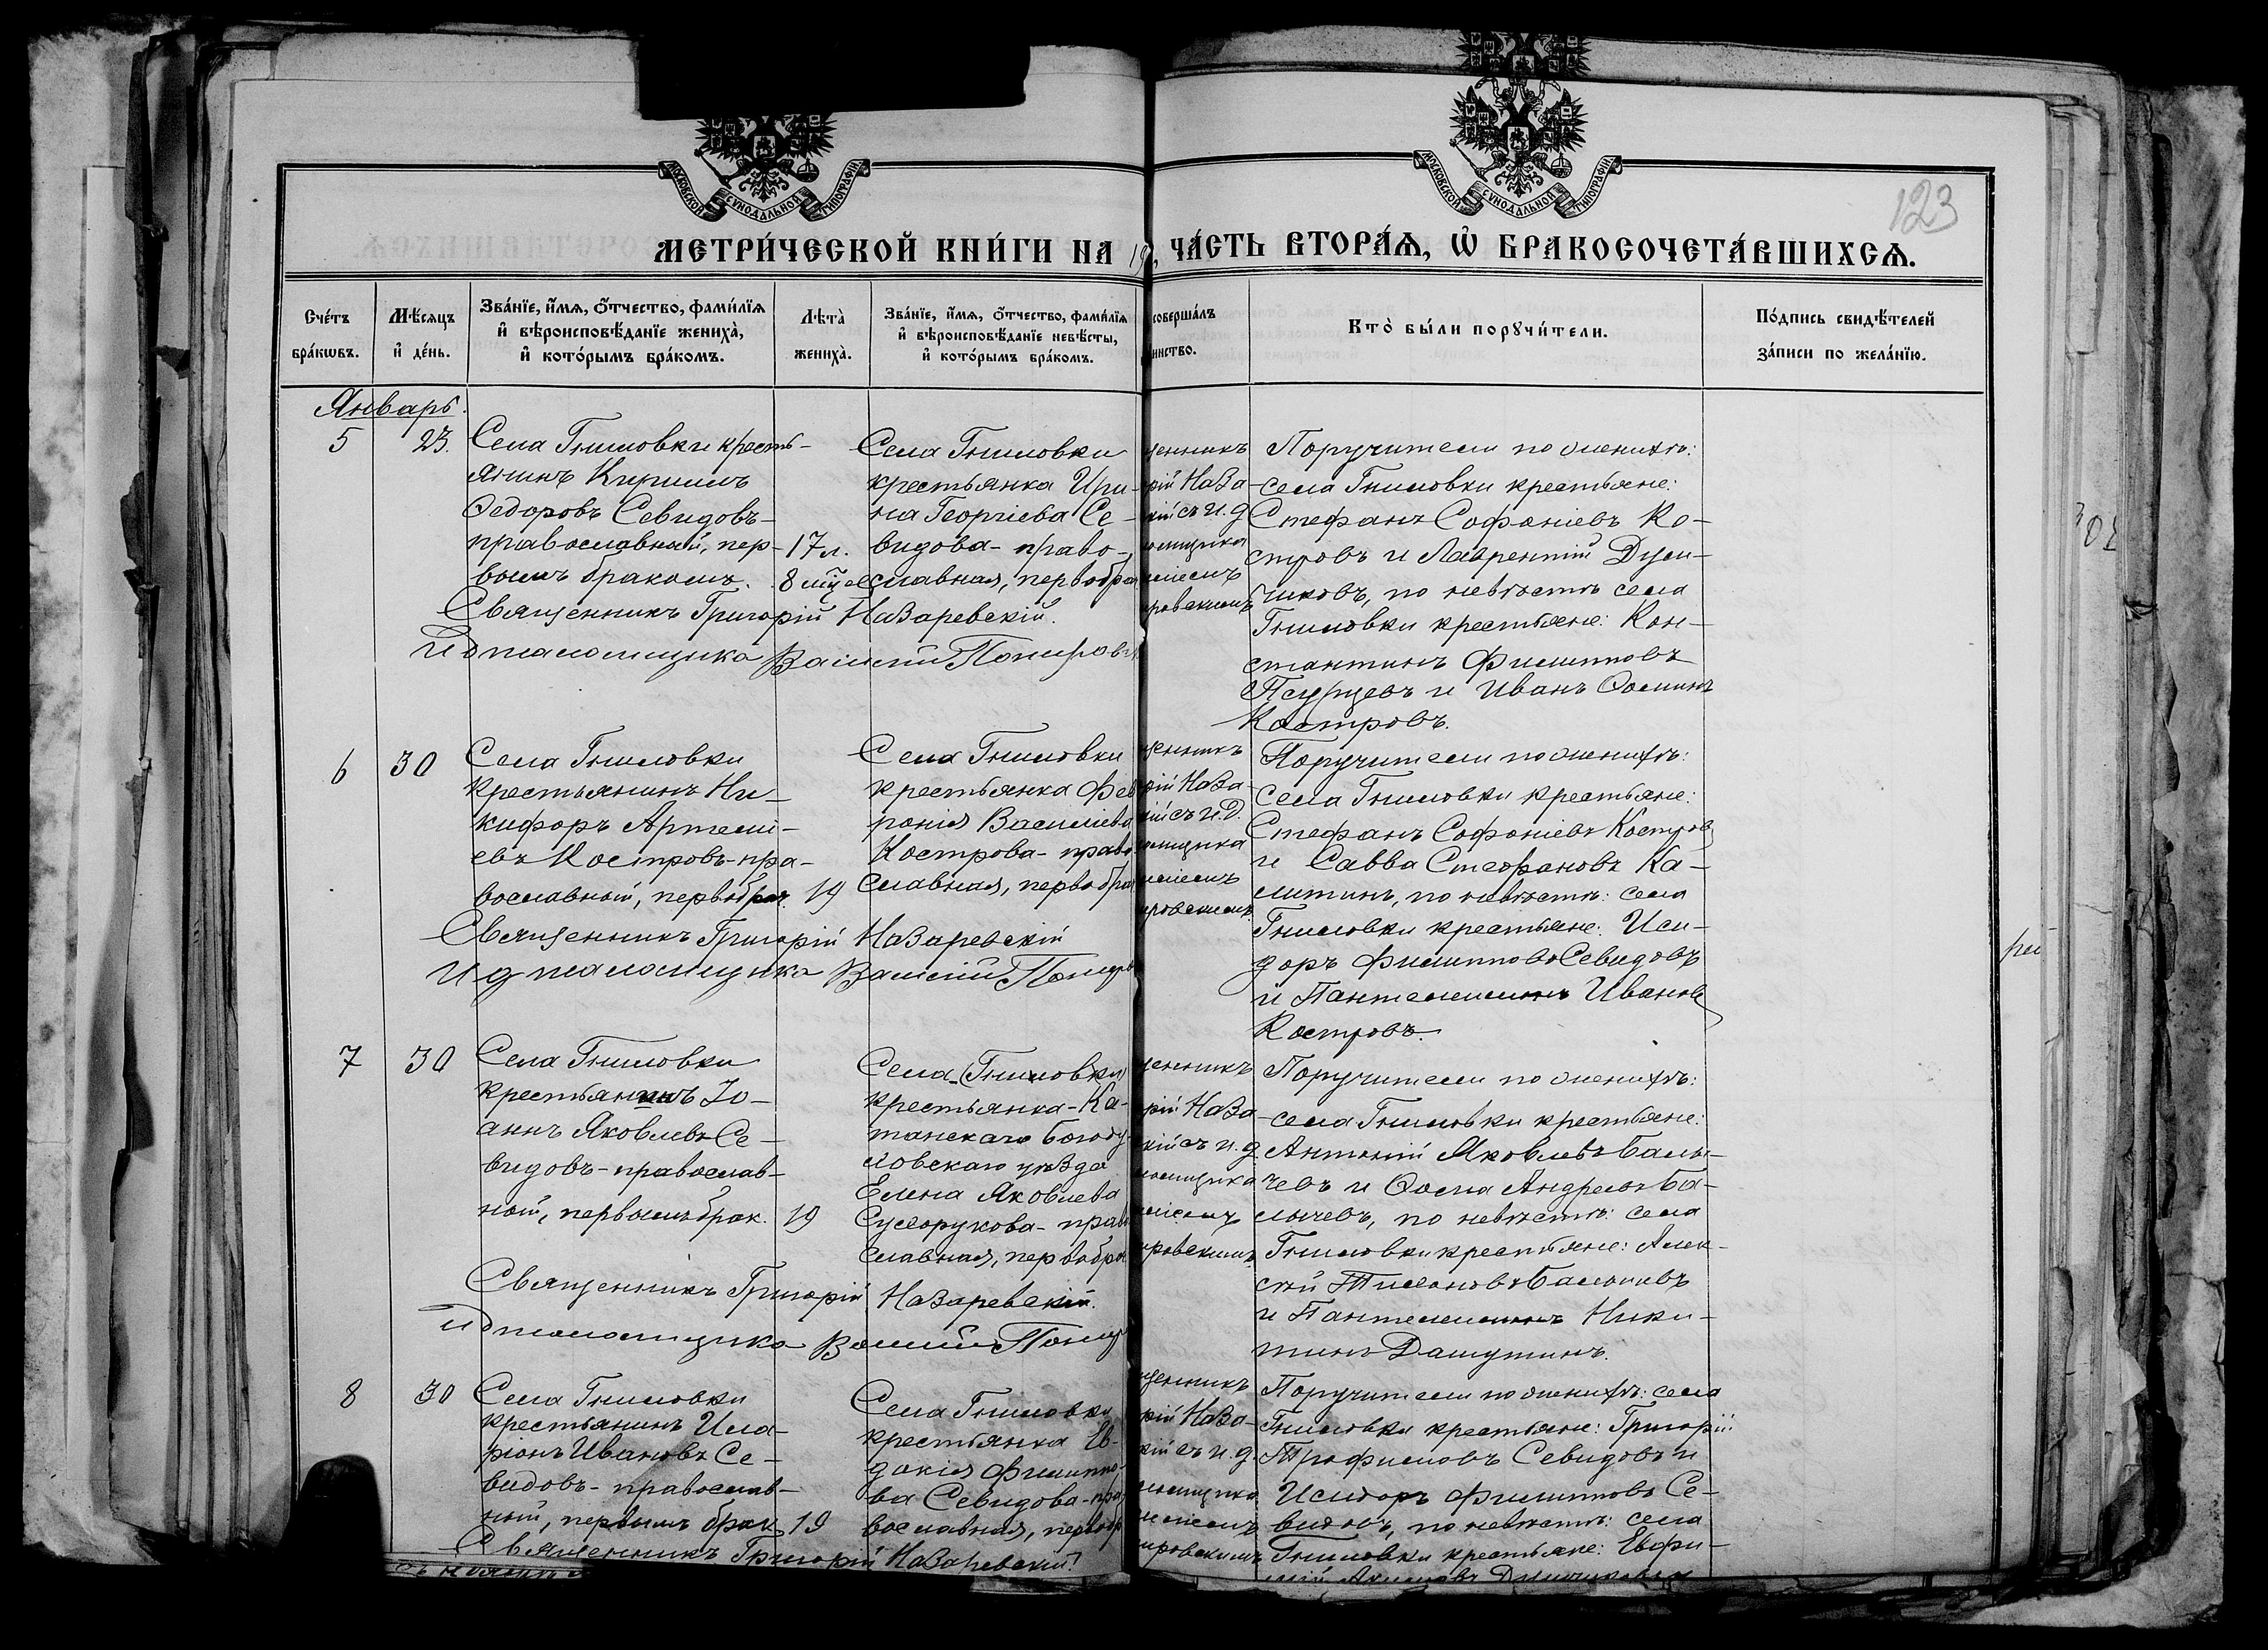 123
МЕТРИ́ЧЕСКОЙ КНИ́ГИ НА 19
ЧА́СТЬ ВТОРА́Я, Ѡ БРАКОСОЧЕТА́ВШИХСЯ.
МОСКОВСКОЙ СѴНОДАЛЬНОЙ ТИПОГРАФІИ
МОСКОВСКОЙ СѴНОДАЛЬНОЙ ТИПОГРАФІИ
Сче́тъ
бра́кωвъ.
Мѣ́сяцъ
и҆ де́нь.
Зва́нїе, и҆́мя, ѻ҆́тчество, фами́лїя
и҆ вѣроисповѣ́данїе жениха̀,
и҆ кото́рымъ бра́комъ.
Лѣта̀
жениха̀.
Зва́нїе, и҆́мя, ѻ҆́тчество, фами́лїя
и҆ вѣроисповѣ́данїе невѣ́сты,
и҆ кото́рымъ бра́комъ.
соверша́лъ
инство.
Кто̀ бы́ли порꙋчи́тели.
По́дпись свидѣ́телей
за́писи по жела́нїю.
Январь.
5
23.
Села Гниловки кресть-
янинъ Кириллъ
Ѳедоровъ Севидовъ-
православный, пер-
вымъ бракомъ.
17 л.
Села Гниловки
крестьянка Ири-
на Георгіева Се-
видова- право-
славная, первобра
Священникъ Григорій Назаревскій.
И д псаломщика Василій
щенникъ
рій Наза
кій съ и. д
омщика
иліемъ
ровскимъ
Поручители по женихѣ:
села Гниловки крестьяне:
Стефанъ Софоніевъ Ко-
стровъ и Лаврентій
чиковъ, по невѣстѣ села
Гниловки крестьяне: Кон-
стантинъ Филипповъ
Псурцевъ и Иванъ Ѳоминъ
Костровъ.
6
30
Села Гниловки
крестьянинъ Ни-
кифоръ Артемі-
евъ Костровъ-пра-
вославный, первобрач.
19
Села Гниловки
крестьянка Фев
ронія Василіева
Кострова- право
славная, первобра
Священникъ Григорій Назаревскій
И д псаломщика Василій
щенникъ
рій Наза
кій съ и. д.
омщика
иліемъ
ровскимъ
Поручители по женихѣ:
села Гниловки крестьяне:
Стефанъ Софоніевъ Костровъ
и Савва Стефановъ Ка-
литинъ, по невѣстѣ: села
Гниловки крестьяне: Иси-
доръ Филипповъ Севидовъ
и Пантелеимонъ Ивановъ
Костровъ.
7
30
Села Гниловки
крестьянинъ Іо-
аннъ Яковлевъ Се-
видовъ- православ-
ный, первымъ брак.
19
Села Гниловки
крестьянка-
Елена Яковлева
Сухорукова- право
славная, первобра
Священникъ Григорій Назаревскій.
И д псаломщика Василій
щенникъ
рій Наза
кій съ и. д.
омщика
иліемъ
ровскимъ
Поручители по женихѣ:
села Гниловки крестьяне:
Антоній Яковлевъ Балы-
чевъ и Ѳома Андреевъ Ба-
лычевъ, по невѣстѣ: села
Гниловки крестьяне: Алек-
сѣй Тихоновъ
и Пантелеимонъ Ники-
тинъ Дашутинъ.
8
30
Села Гниловки
крестьянинъ Ила-
ріонъ Ивановъ Се-
видовъ- православ-
ный, первымъ брак
19
Села Гниловки
крестьянка Ев-
докія Филиппо-
ва Севидова- пра
вославная, первобр
Священникъ Григорій Назаревскій.
щенникъ
рій Наза-
кій съ и. д.
омщика
иліемъ
ровскимъ
Поручители по женихѣ: села
Гниловки крестьяне: Григорій
Трофимовъ Севидовъ и
Исидоръ Филипповъ Се-
видовъ, по невѣстѣ: села
Гниловки крестьяне: Евфи-
мій Акимовъ